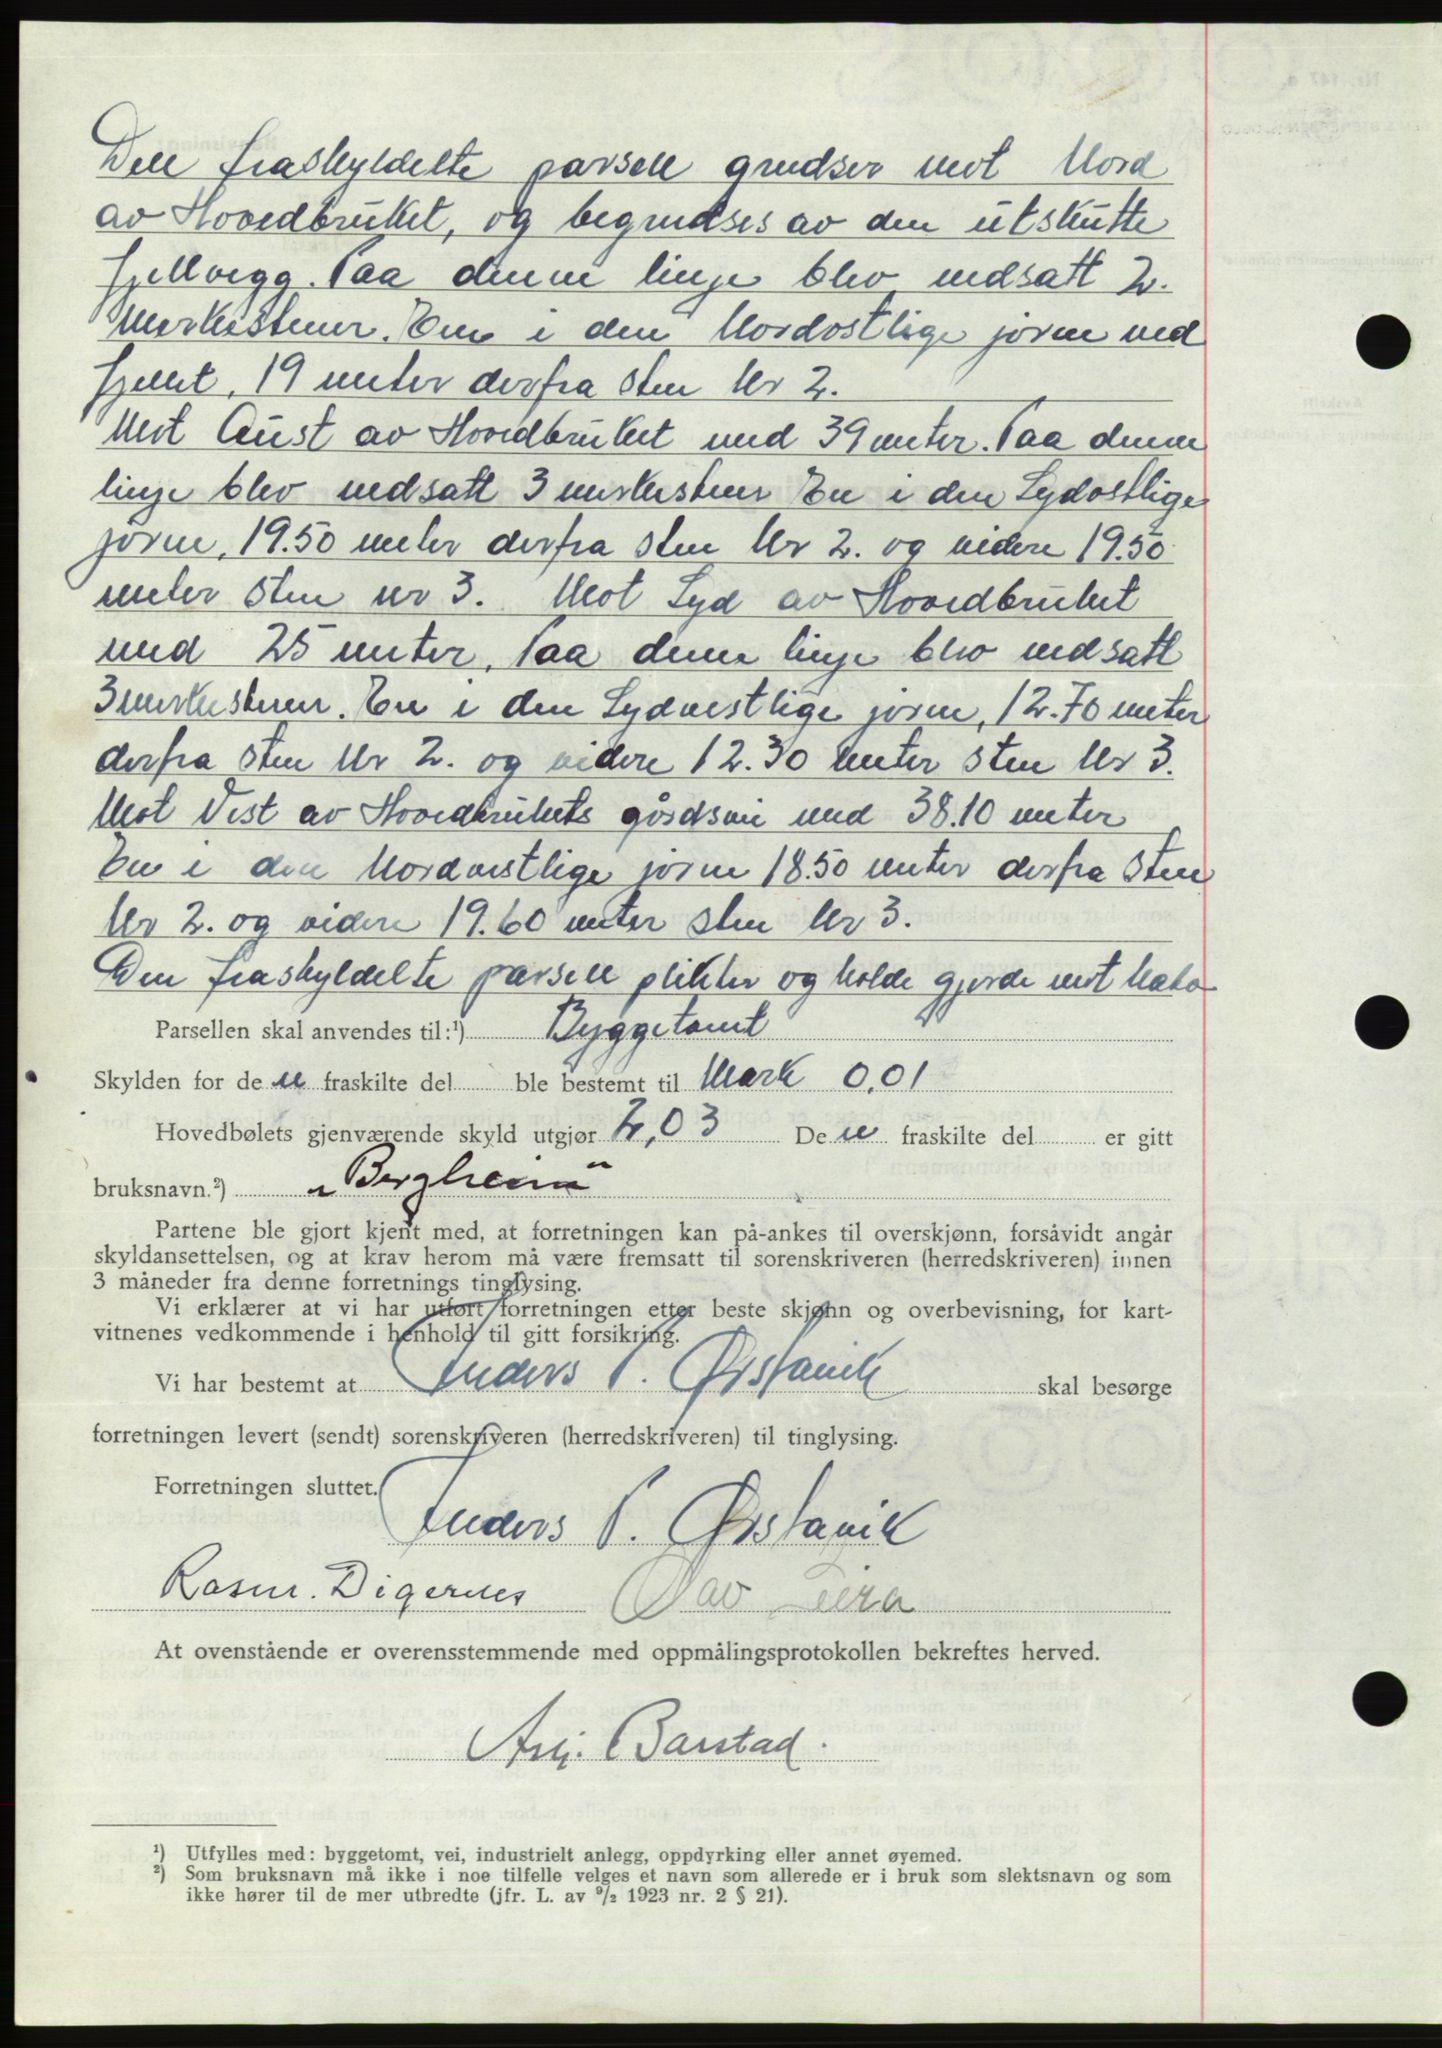 Den fraskyldelte parsell grendser mot Nord
av Hovedbruket, og begrendses av den utskutte
fjellvegg. Paa denne linje blev nedsatt 2.
Merkestener. En i den Nordostlige jørne ved
fjellet, 19 meter derfra sten Nr 2.
Mot Aust av Hovedbruket med 39 meter. Paa denne
linje blev nedsatt 3 merkestener En i den Sydostlige
jørne, 19.50 meter derfra sten Nr 2. og videre 19.50
meter sten nr 3. Mot Syd av Hovedbruket
med 25 meter, Paa denne linje blev nedsatt
3 merkestener. En i den Sydvestlige jørne, 12.70 meter
derfra sten Nr 2. og videre 12.30 meter sten Nr 3.
Mot Vest av Hovedbrukets gårdsvei med 38.10 meter
En i den Nordvestlige jørne 18.50 meter derfra sten
Nr 2. og videre 19.60 meter sten Nr 3.
Den fraskyldelte parsell plikter og holde gjerde mot
Parsellen skal anvendes til:¹) Byggetomt
Skylden for de n fraskilte del ble bestemt til Mark 0,01
Hovedbølets gjenværende skyld utgjør 2,03 De n fraskilte del er gitt
bruksnavn.²) „Bergheim"
Partene ble gjort kjent med, at forretningen kan på-ankes til overskjønn, forsåvidt angår
skyldansettelsen, og at krav herom må være fremsatt til sorenskriveren (herredskriveren) innen
3 måneder fra denne forretnings tinglysing.
Vi erklærer at vi har utført forretningen etter beste skjønn og overbevisning, for kart-
vitnenes vedkommende i henhold til gitt forsikring.
Vi har bestemt at Anders P. Ørstavik skal besørge
forretningen levert (sendt) sorenskriveren (herredskriveren) til tinglysing.
Forretningen sluttet.
Anders P. Ørstavik
Rasm. Digernes Olav Leira
At ovenstående er overensstemmende med oppmålingsprotokollen bekreftes herved.
Asbj. Barstad.
¹) Utfylles med: byggetomt, vei, industrielt anlegg, oppdyrking eller annet øyemed.
²) Som bruksnavn må ikke i noe tilfelle velges et navn som allerede er i bruk som slektsnavn og som
ikke hører til de mer utbredte (jfr. L. av 9/2 1923 nr. 2 § 21).